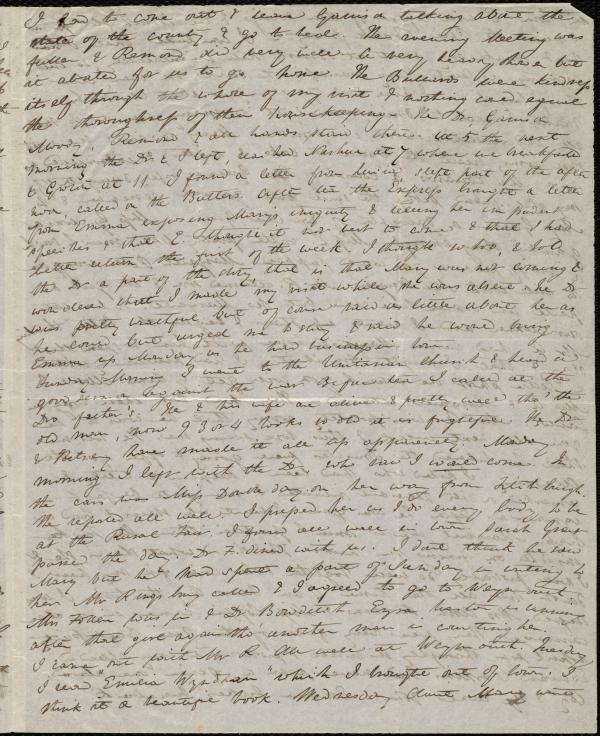 I had to come out & leave Garrison talking about the
state of the country & go to bed. The evening Meeting was
fuller & Remond did very well. A very heavy shower but
it abated for us to go home. The Bullards were kindness
itself through the whole of my visit & nothing could equal
the thoroughness of their housekeeping. The Dr Garrison
Moody, Remond & all hands staid there. At 5 the next
morning the Dr & I left, reached Nashua at 7 where we breakfasted
& Groton at 11. I found a letter from slept part of the after
noon, called on the Butlers. After tea the Express brought a letter
from Emma exposing Mary's iniquity & telling her imprudent
speeches & that E. thought it not best to come & that I had
better return the first of the week. I thought so too, & told
the Dr a part of the story, that is that Mary was not coming &
wondered that I made my visit while she was absent. The Dr
was pretty wrathful but of course said as little about her as
he could but urged me to stay & said he would bring
Emma up Monday as he had business in town.
Sunday Morning I went to the Unitarian Church & heard a
good sermon against the war. Before tea I called at the
Dr's father's. He & his wife are alive & pretty well, tho' the
old man, now 93 or 4 looks so old it is frightful. The Dr
& Betsey have made it all up apparently. Monday
morning I left with the Dr who saw I would come. In
the cars was Miss on her way from Fitchburgh.
She reported all well. I pressed her as I do every body to be
at the Rural Fair. I found all well in town. Sarah
passed the day, Dr Z. dined with us. I don't think he saw
Mary but he had spent a part of Sunday in writing to
her. Mr Kingsbury called & I agreed to go to Weymouth.
Mrs Follen was in & Dr Bowditch. Ezra is
after that girl again tho' another man is courting her.
I came out with Mr K. All well at Weymouth. Tuesday
I read "Emilia Wyndham" which I brought out of town. I
think it a beautiful book. Wednesday Aunt Mary went